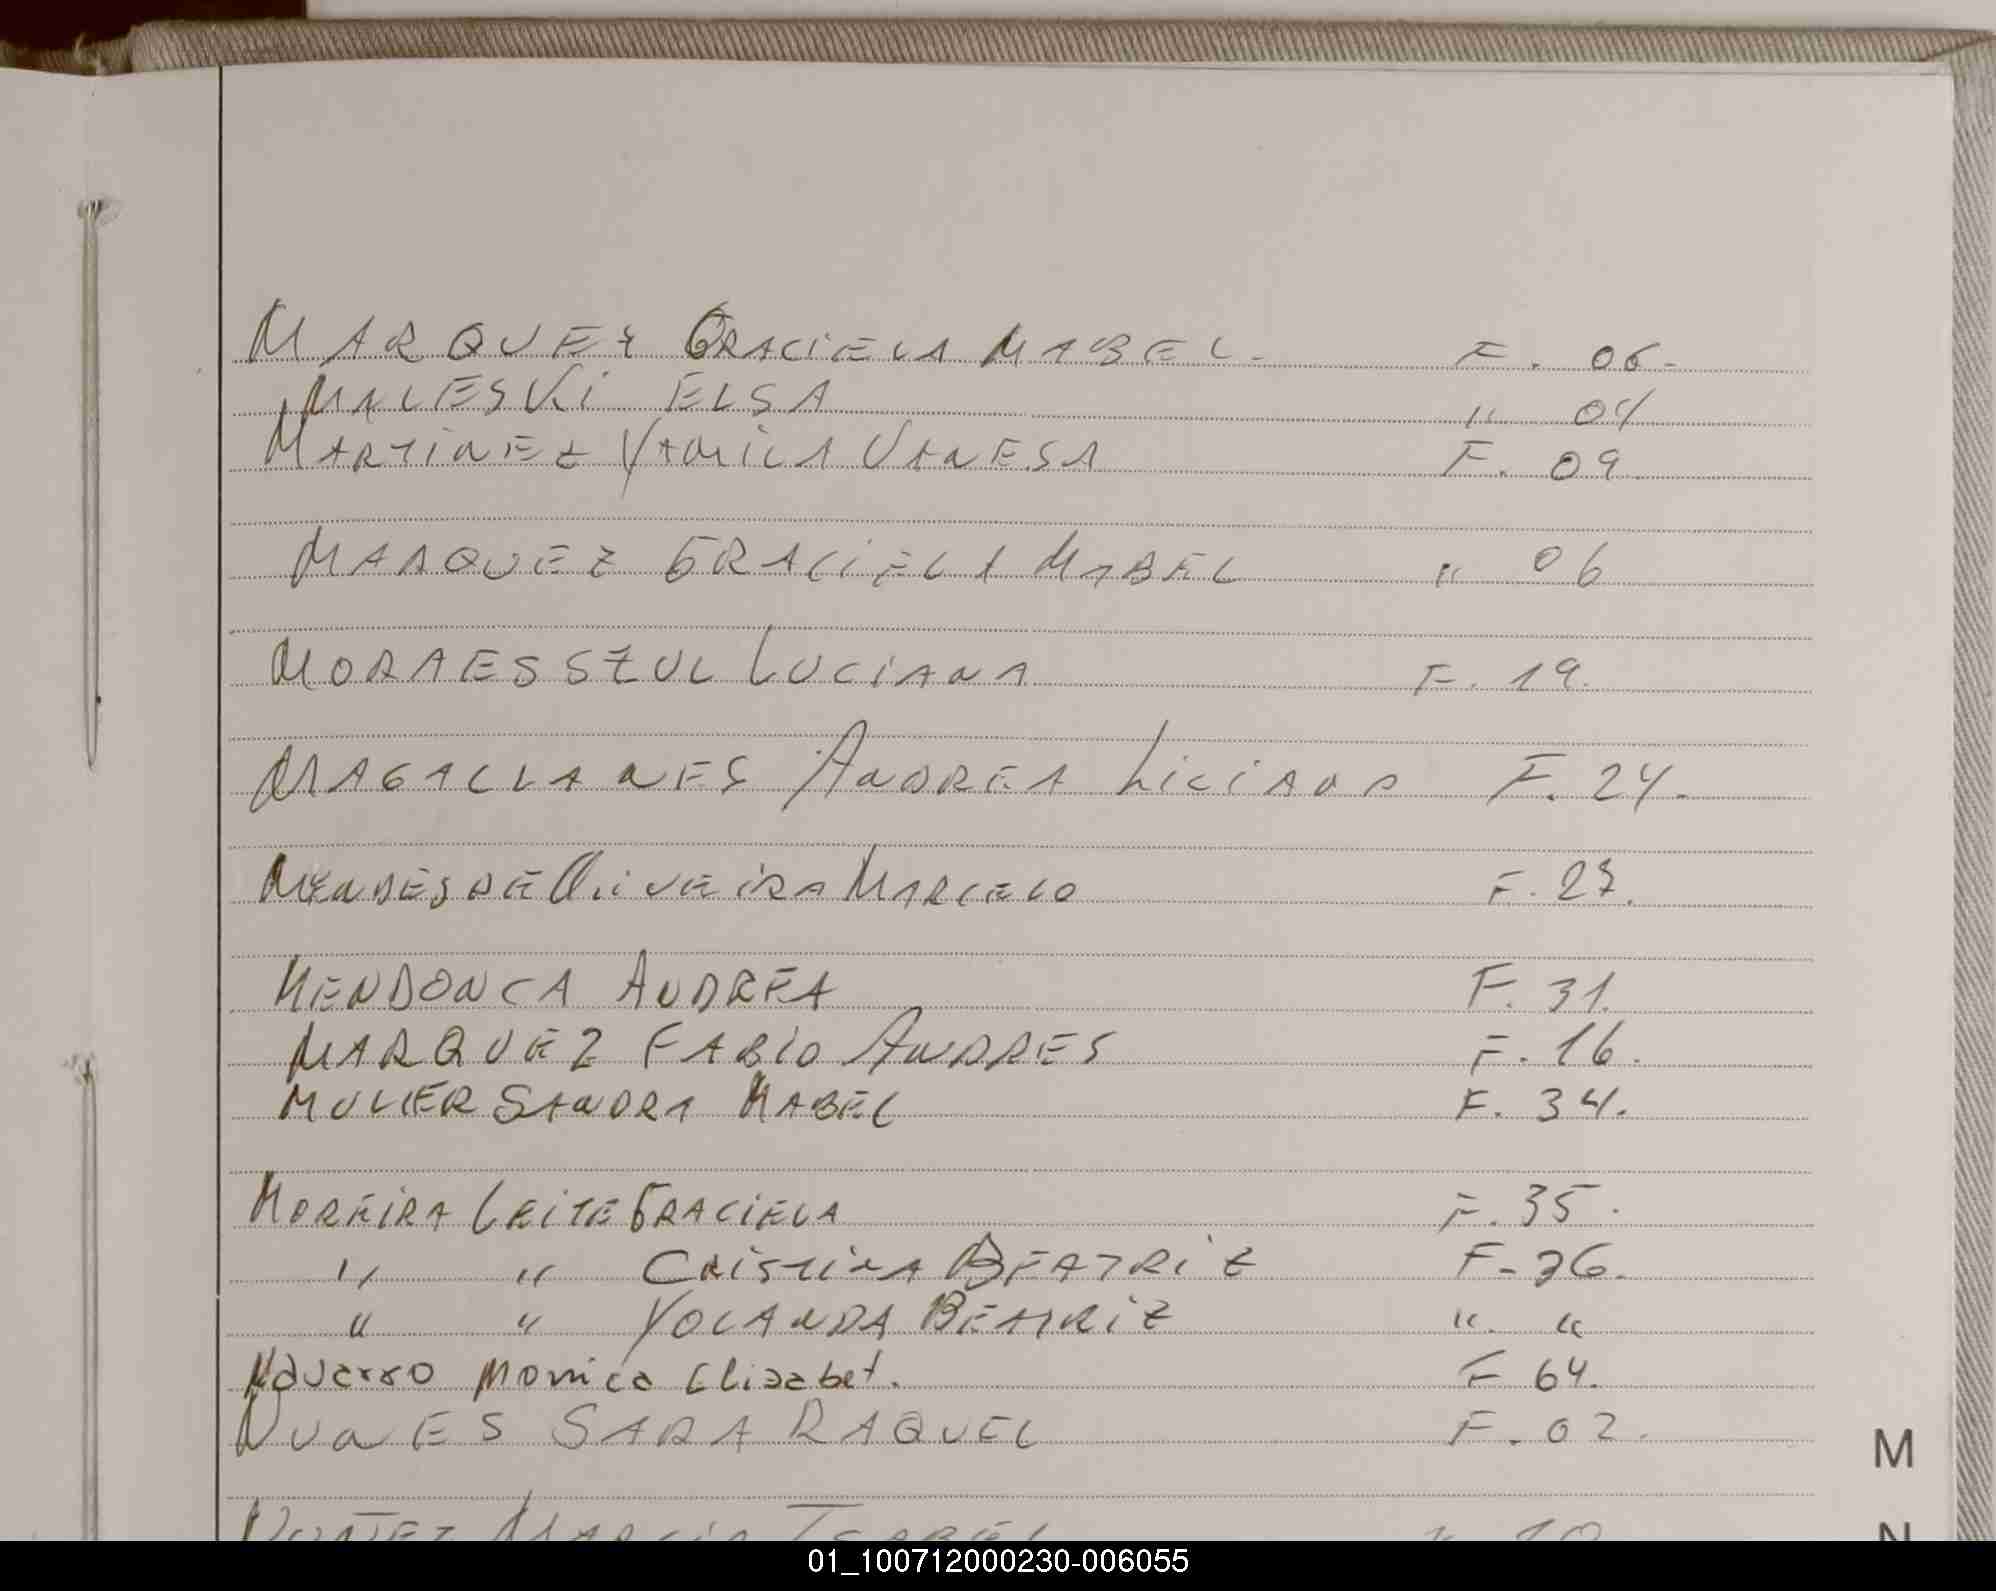 MARQUEZ GRACIELA MABEL. F. 06.
MALESKI ELSA " 04
MARTINEZ YAMILA VANESA F. 09
MARQUEZ GRACIELA MABEL " 06
MORAES SZUL LUCIANA F. 19.
MAGALLANES ANDREA F. 24.
MENDES DE OLIVEIRA MARCELO F. 27.
MENDONCA ANDREA F. 31.
MARQUEZ FABIO ANDRES F. 16.
MULLER SANDRA MABEL F. 34.
MOREIRA LEITE GRACIELA F. 35.
" " CRISTINA BEATRIZ F. 36.
" " YOLANDA BEATRIZ " "
Navarro Monica Elizabet. F 64.
NUNES SARA RAQUEL F. 02.
M
N
01_100712000230-006055